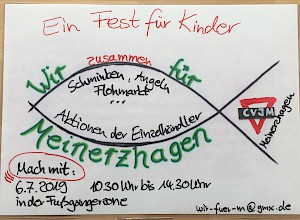 Ein Fest für Kinder
zusammen
Wir für
Schminken, Angeln
Flohmarkt
...
Aktionen der Einzelhändler
Meinerzhagen
CVJM
Meinerzhagen
Mach mit:
6.7.2019 10.30 Uhr bis 14.30 Uhr
in der Fußgängerzone
wir-fuer-m@gmx.de